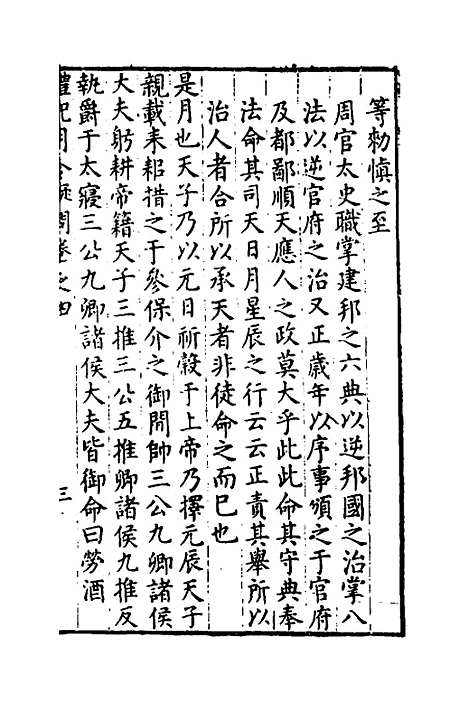 等勑愼之至
周官太史職掌建邦之六典以逆邦國之治掌八
法以逆官府之治又正歲年以序事頒之于官府
及都鄙順天應人之政莫大乎此此命其守典奉
法命其司天日月星辰之行云云正責其舉所以
治人者合所以承天者非徒命之而巳也
是月也天子乃以元日祈穀于上帝乃擇元辰天子
親載耒耜措之于參保介之御閒帥三公九卿諸侯
大夫躬耕帝籍天子三推三公五推卿諸侯九推反
執爵于太寢三公九卿諸侯大夫皆御命曰勞酒
禮記月令疑問卷之四
三